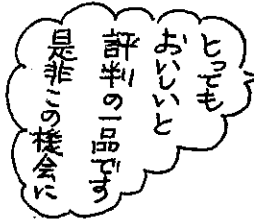 とっても
おいしいと
評判の一品です
是非この機会に